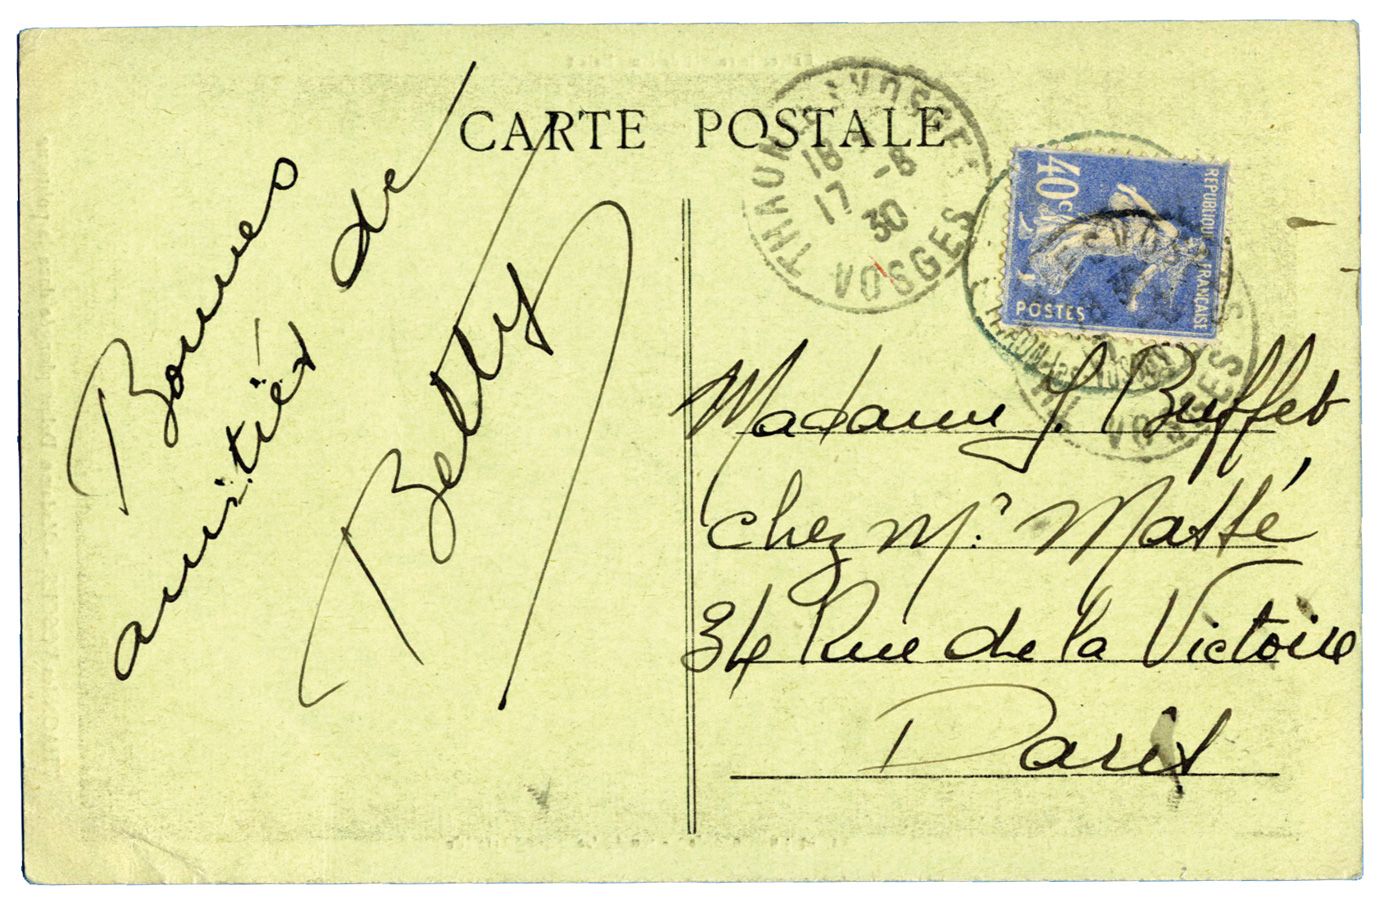 CARTE POSTALE
Bonnes
amitiés de
Betty
THAON-LES-VOSGES
18
17 -8
30
VOSGES
40c
REPUBLIQUE FRANÇAISE
POSTES
THAON-les-VOSGES
VOSGES
Madame J. Buffet
chez Mr. Matté
34 Rue de la Victoire
Paris